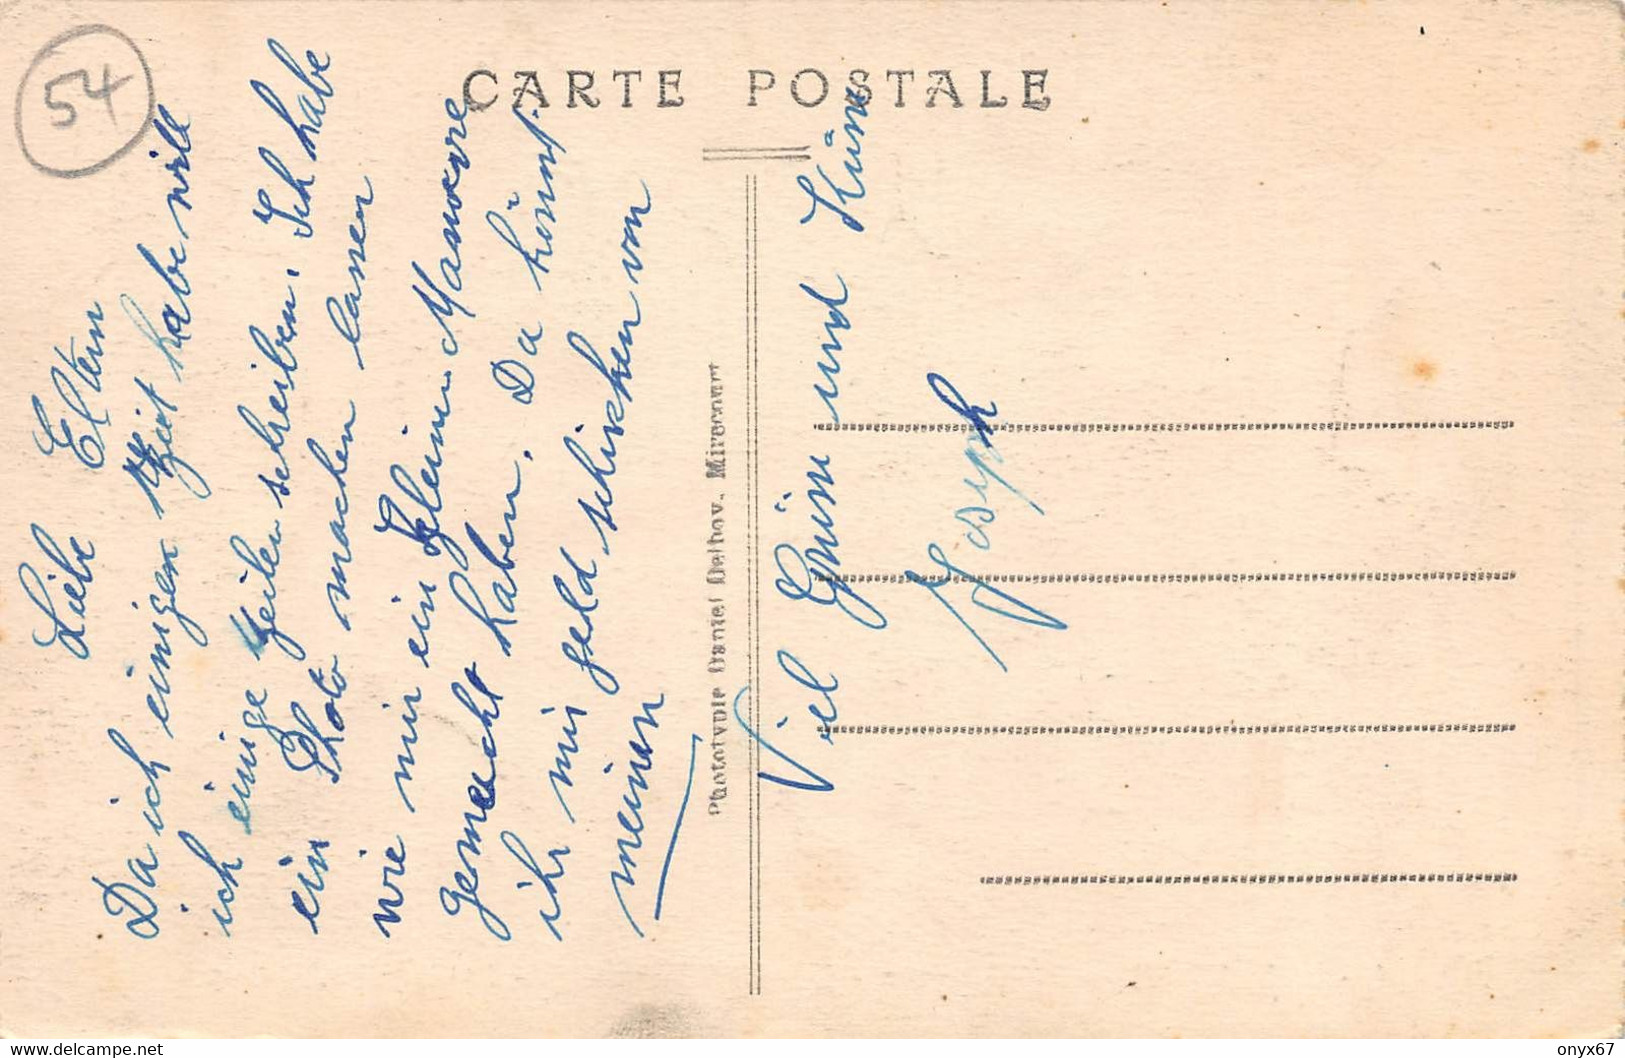 54
CARTE POSTALE
Liebe Eltern
Da ich einigen Zeit habe will
ich einige Zeilen schreiben. Ich habe
ein Photo machen lassen
wie mir ein kleinen Manovre
gemacht haben. Da könnt
ihr mir geld schicken von
meinen
Phototypie Daniel Delboy. Mirecourt
Viel Grüss und Küsse
Joseph
www.delcampe.net
onyx67